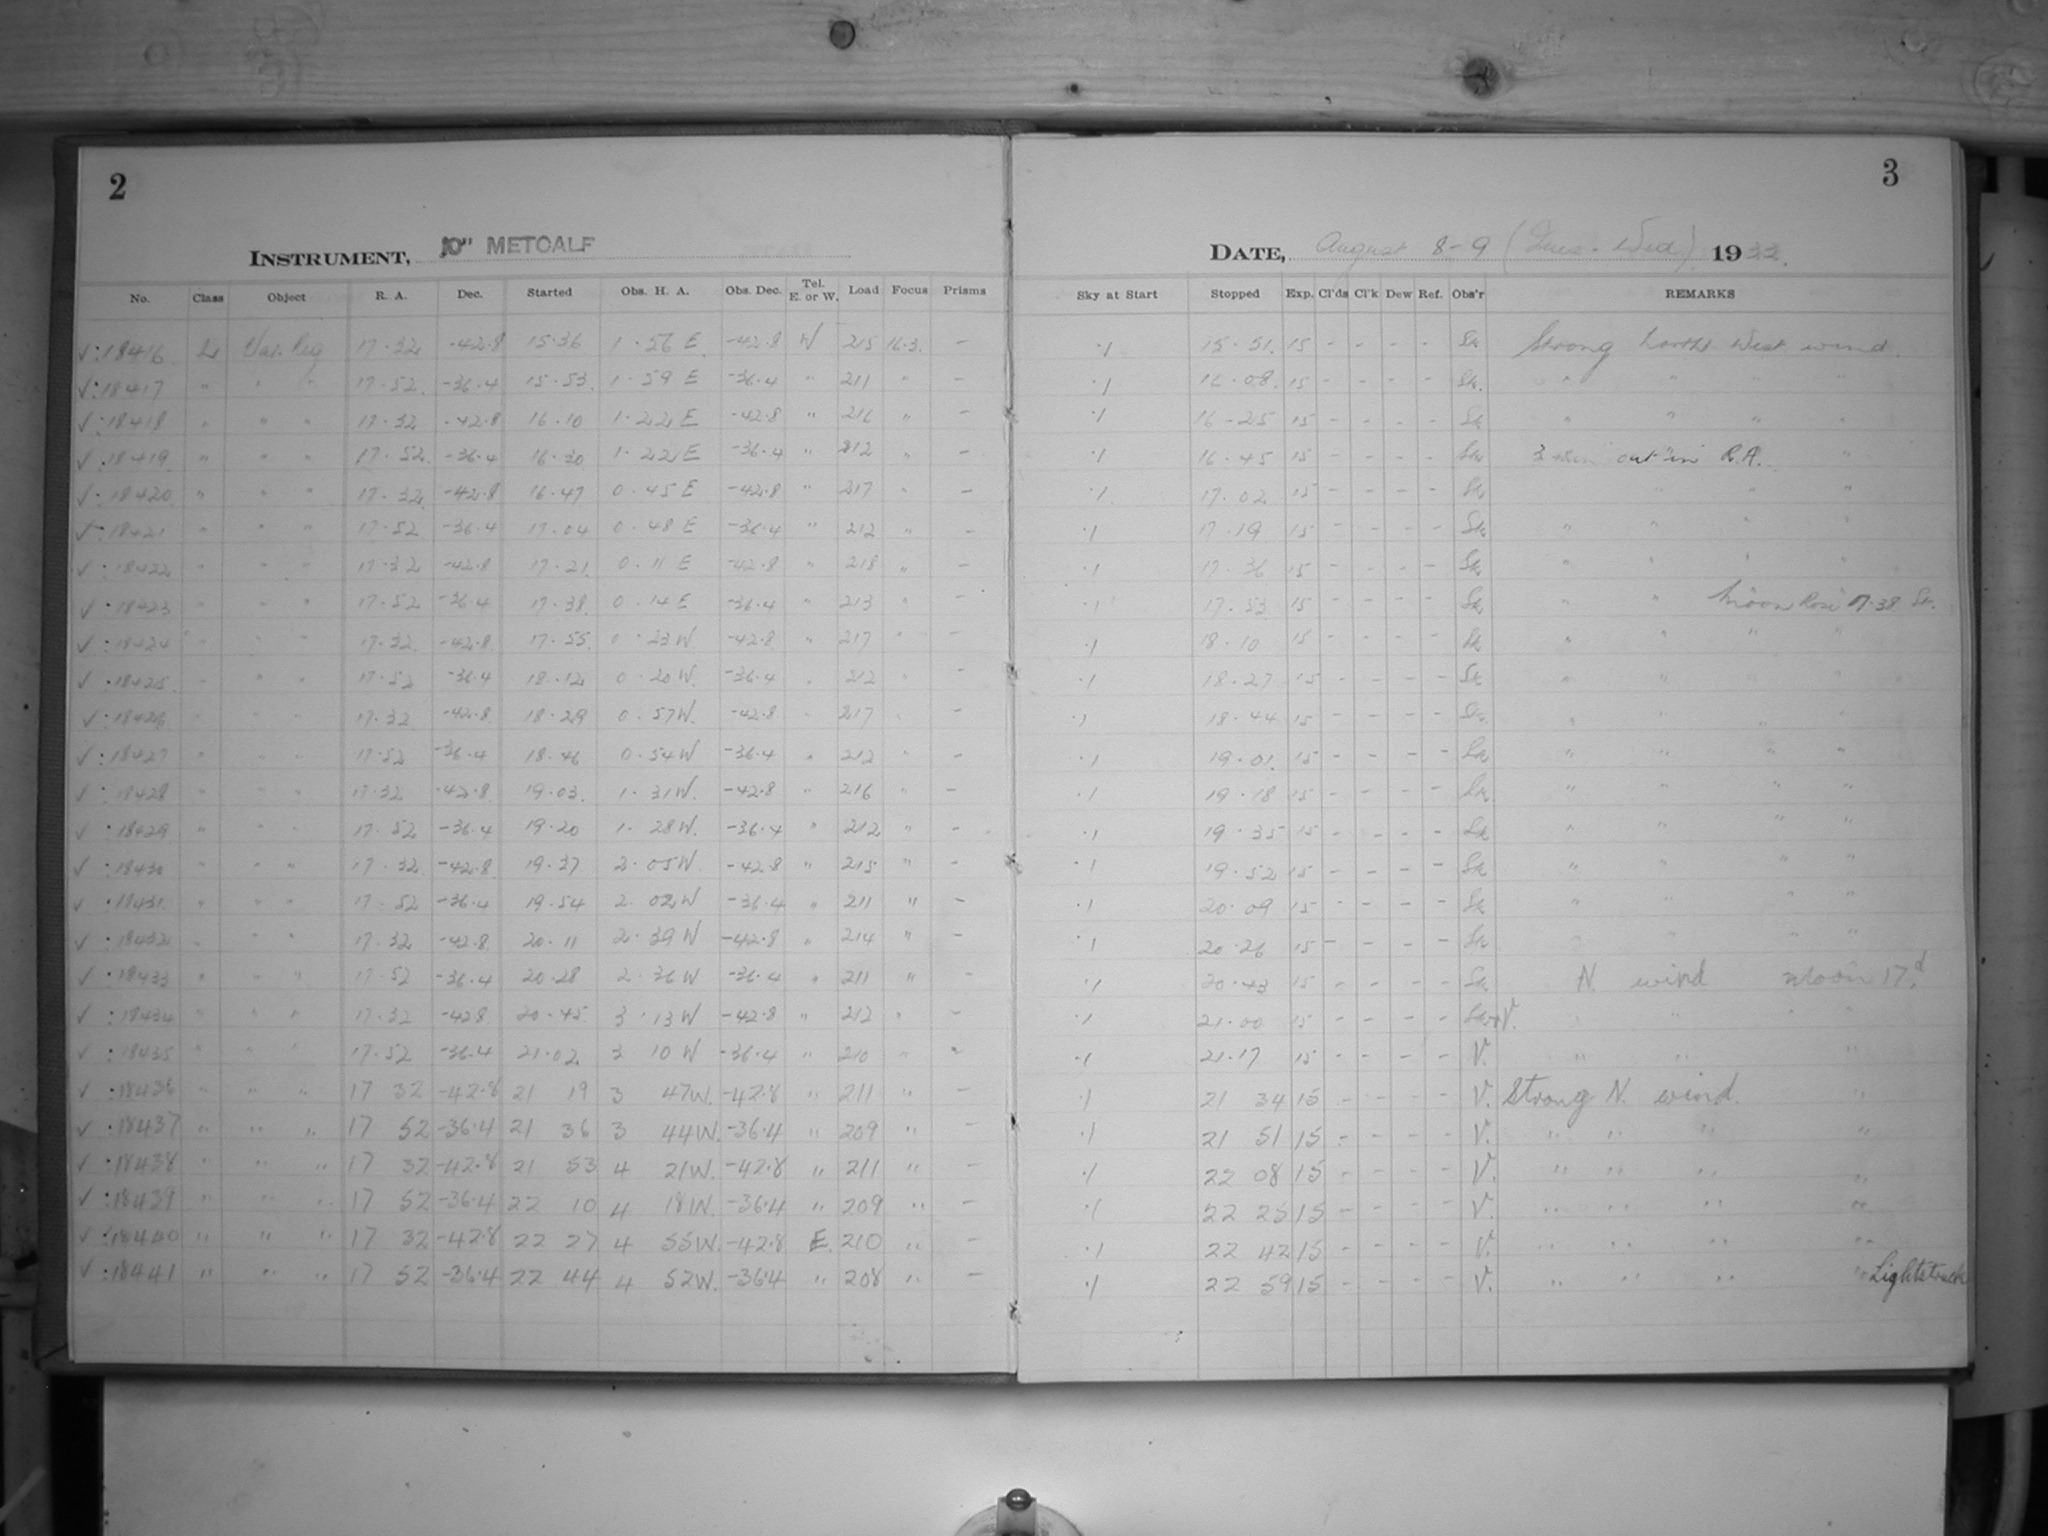 2
INSTRUMENT, 10" METCALF
No. Class Object R. A. Dec. Started Obs. H. A. Obs. Dec. Tel. E. or W. Load Focus Prisms
√:18416 L Var. Reg 17·32 -42·8 15·36 1·56 E -42·8 W 215 16·3 –
√:18417 " " " 17·52 -36·4 15·53 1·59 E -36·4 " 211 " –
√:18418 " " " 17·32 -42·8 16·10 1·22 E -42·8 " 216 " –
√:18419 " " " 17·52 -36·4 16·30 1·22 E -36·4 " 212 " –
√:18420 " " " 17·32 -42·8 16·47 0·45 E -42·8 " 217 " –
√:18421 " " " 17·52 -36·4 17·04 0·48 E -36·4 " 212 " –
√:18422 " " " 17·32 -42·8 17·21 0·11 E -42·8 " 218 " –
√:18423 " " " 17·52 -36·4 17·38 0·14 E -36·4 " 213 " –
√:18424 " " " 17·32 -42·8 17·55 0·23 W -42·8 " 217 " –
√:18425 " " " 17·52 -36·4 18·12 0·20 W -36·4 " 212 " –
√:18426 " " " 17·32 -42·8 18·29 0·57 W. -42·8 " 217 " –
√:18427 " " " 17·52 -36·4 18·46 0·54 W -36·4 " 212 " –
√:18428 " " " 17·32 -42·8 19·03 1·31 W. -42·8 " 216 " –
√:18429 " " " 17·52 -36·4 19·20 1·28 W. -36·4 " 212 " –
√:18430 " " " 17·32 -42·8 19·37 2·05 W -42·8 " 215 " –
√:18431 " " " 17·52 -36·4 19·54 2·02 W -36·4 " 211 " –
√:18432 " " " 17·32 -42·8 20·11 2·39 W -42·8 " 214 " –
√:18433 " " " 17·52 -36·4 20·28 2·36 W -36·4 " 211 " –
√:18434 " " " 17·32 -42·8 20·45 3·13 W -42·8 " 212 " –
√:18435 " " " 17·52 -36·4 21·02 3 10 W -36·4 " 210 " –
√:18436 " " " 17 32 -42·8 21 19 3 47 W. -42·8 " 211 " –
√:18437 " " " 17 52 -36·4 21 36 3 44 W. -36·4 " 209 " –
√:18438 " " " 17 32 -42·8 21 53 4 21 W. -42·8 " 211 " –
√:18439 " " " 17 52 -36·4 22 10 4 18 W. -36·4 " 209 " –
√:18440 " " " 17 32 -42·8 22 27 4 55 W. -42·8 E. 210 " –
√:18441 " " " 17 52 -36·4 22 44 4 52 W. -36·4 " 208 " –
3
DATE, August 8-9 (Tues - Wed.) 1933.
Sky at Start Stopped Exp. Cl'ds Cl'k Dew Ref. Obs'r REMARKS
·1 15·51. 15 - - - - Sk Strong North West wind.
·1 16·08. 15 - - - - Sk. " " " "
·1 16-25 15 - - - - Sk " " " "
·1 16·45 15 - - - - Sk 3 min out in R.A. "
·1 17·02 15 - - - - Sk " " "
·1 17·19 15 - - - - Sk " " " "
·1 17·36 15 - - - - Sk " " " "
·1 17·53 15 - - - - Sk " " Moon Rose 17·38 St.
·1 18·10 15 - - - - Sk " " " "
·1 18·27 15 - - - - Sk " " " "
·1 18·44 15 - - - - Sk " " " "
·1 19·01. 15 - - - - Sk " " " "
·1 19·18 15 - - - - Sk " " " "
·1 19·35 15 - - - - Sk " " " "
·1 19·52 15 - - - - Sk " " " "
·1 20·09 15 - - - - Sk " " " "
·1 20·26 15 - - - - Sk " " " "
·1 20·43 15 - - - - Sk N. wind moon 17d.
·1 21·00 15 - - - - Sk+V. " " " "
·1 21·17 15 - - - - V. " " "
·1 21 34 15 - - - - V. Strong N. wind. "
·1 21 51 15 - - - - V. " " " "
·1 22 08 15 - - - - V. " " " "
·1 22 25 15 - - - - V. " " " "
·1 22 42 15 - - - - V. " " " "
·1 22 59 15 - - - - V. " " " " Lightstruck